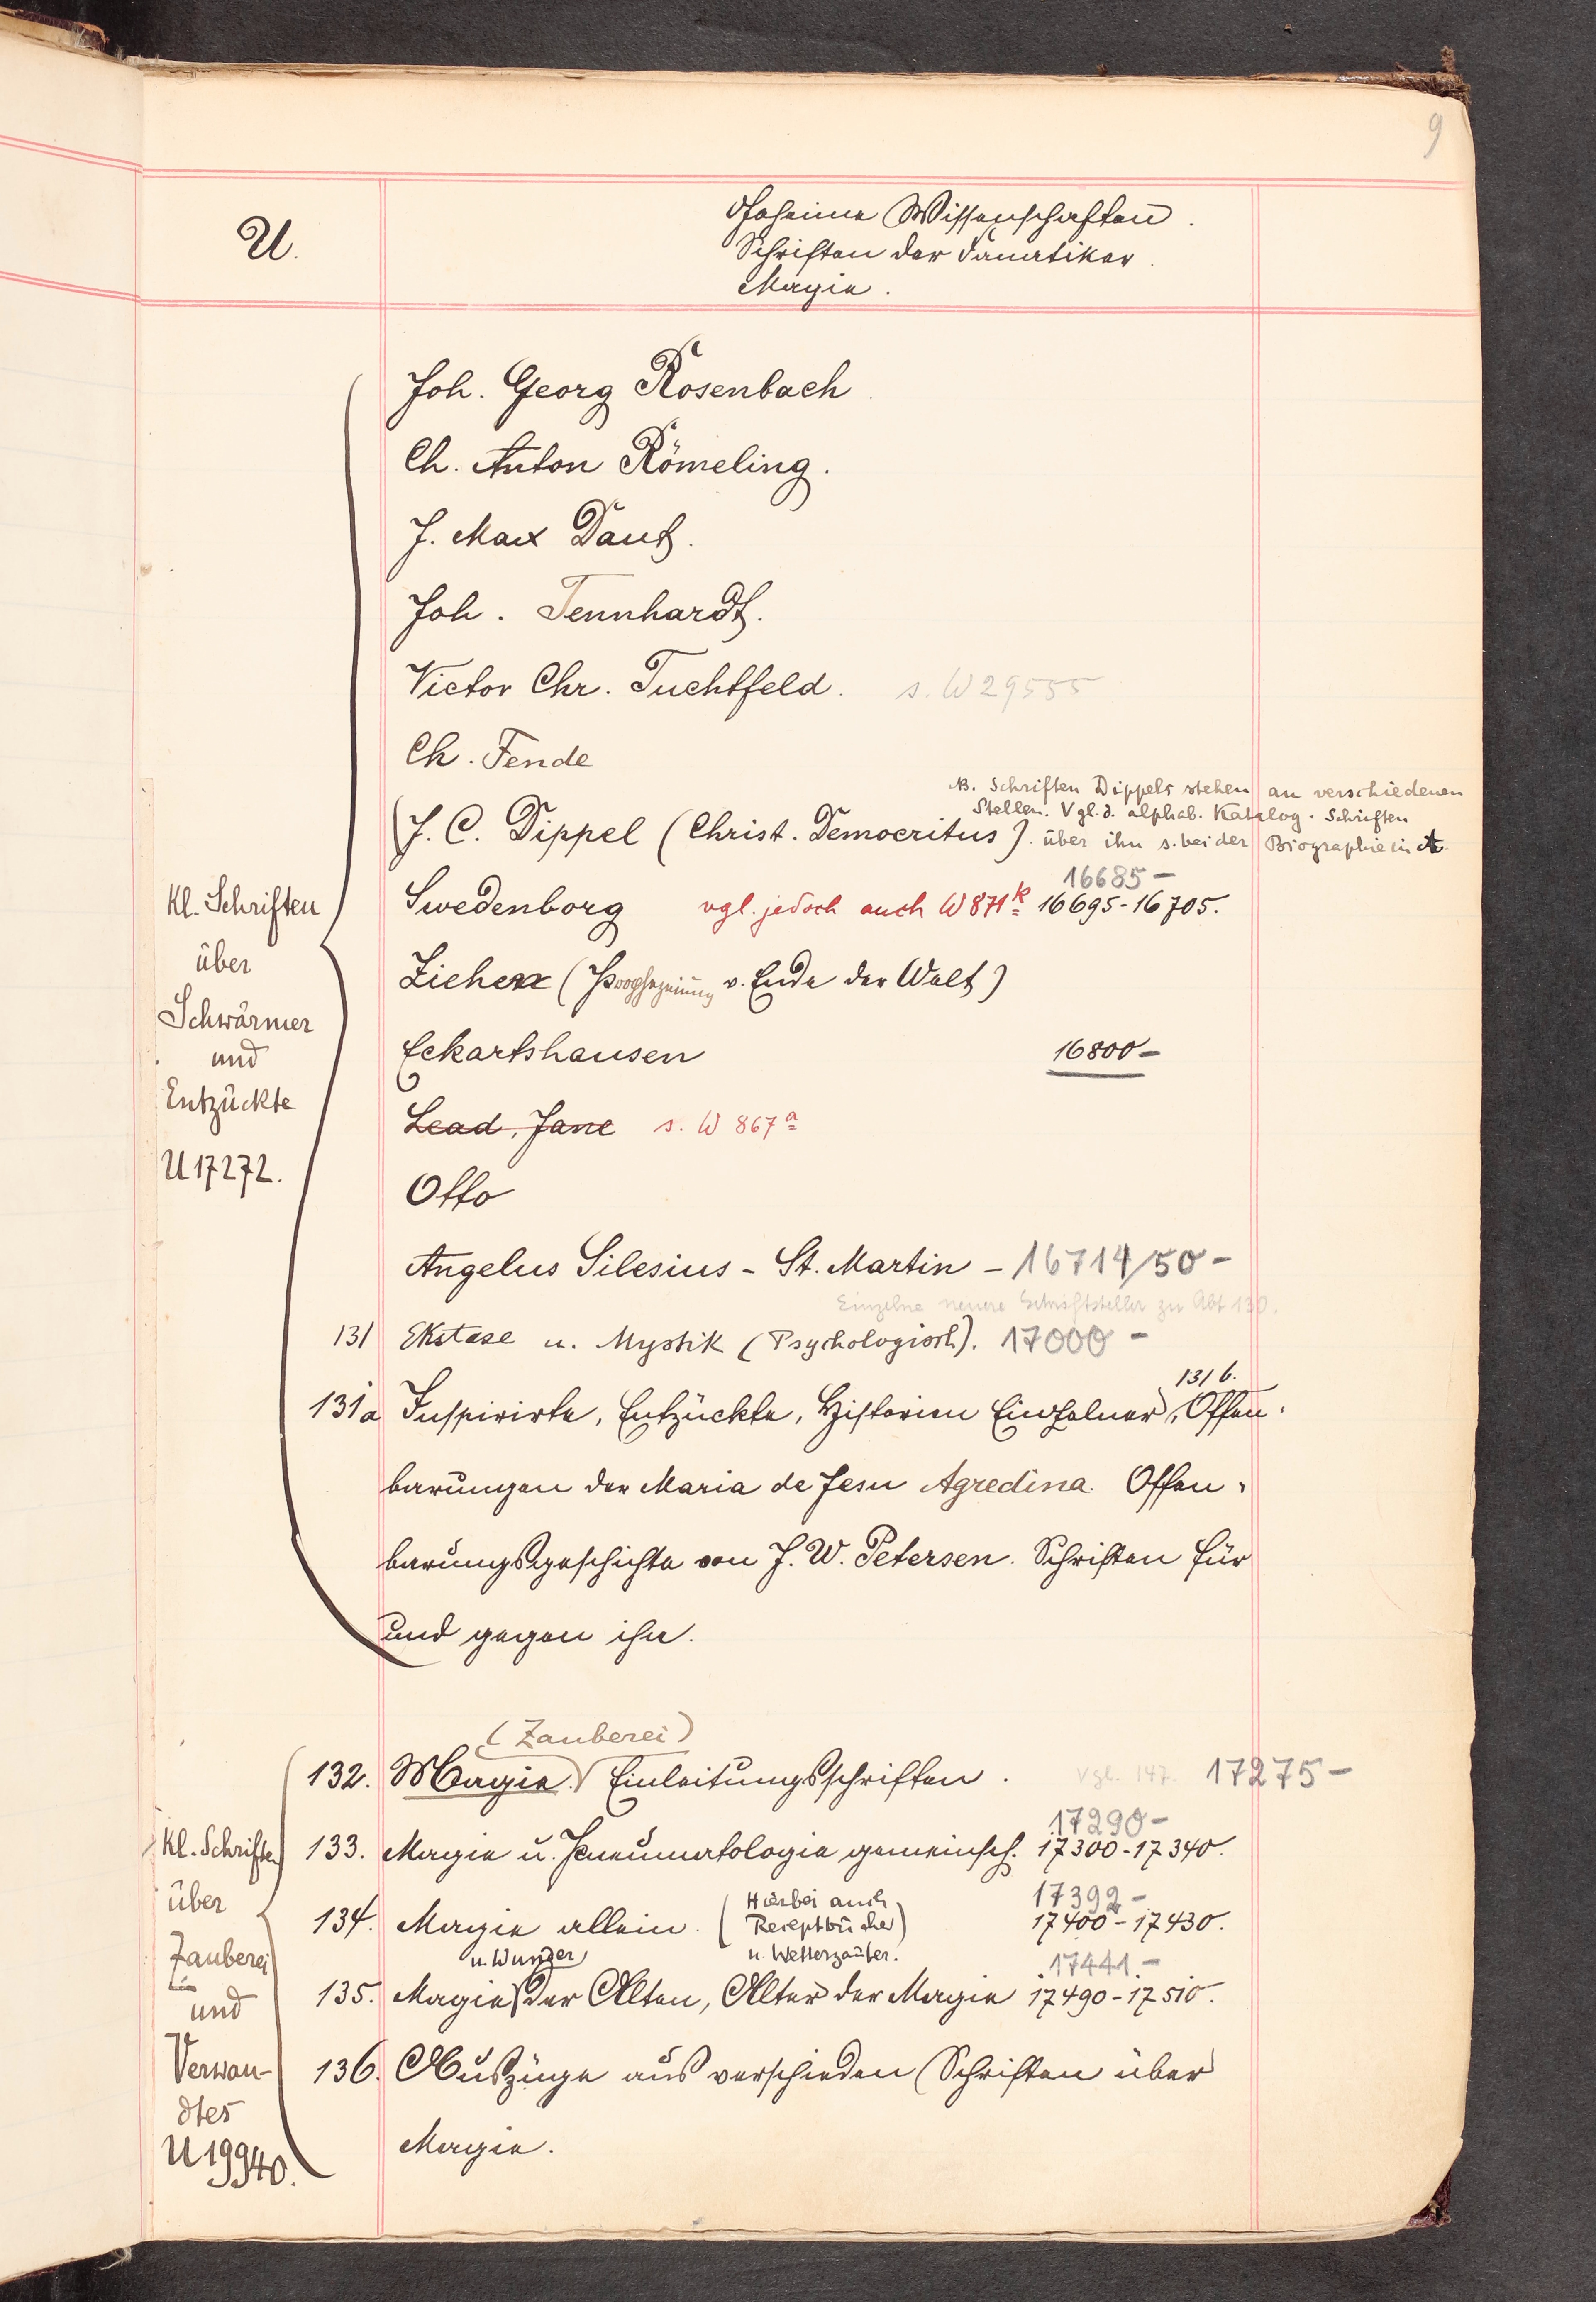 9
U.
Geheime Wissenschaften.
Schriften der Fanatiker.
Magie.
Joh. Georg Rosenbach
Ch. Anton Römeling.
J. Max Daut.
Joh. Tennhardt.
Victor Chr. Tuchtfeld. s. W 29555
Ch. Fende
NB. Schriften Dippels stehen an verschiedenen
Stellen. Vgl. d. alphab. Katalog. Schriften
(J. C. Dippel (Christ. Democritus). über ihn s. bei der Biographie in A.
16685-
Swedenborg vgl. jedoch auch W 871k 16695-16705.
Ziehen (Prophezeiung v. Ende der Welt)
Eckartshausen 16800-
Lead, Jane s. W 867a
Otto
Angelus Silesius - St. Martin - 16714/50-
Einzelne neuere Schriftsteller zu Abt 130.
131 Ekstase u. Mystik (Psychologisch). 17000-
131b.
131a Inspirirte, Entzückte, Historien Einzelner, Offen-
barungen der Maria de Jesu Agredina. Offen-
barungsgeschichte von J. W. Petersen. Schriften für
und gegen ihn.
Kl. Schriften
über
Schwärmer
und
Entzückte
U 17272.
(Zauberei)
132. Magie. Einleitungsschriften. vgl. 147. 17275-
17290-
133. Magie u. Pneumatologie gemeinsch. 17300-17340.
17392-
134. Magie allein. (Hierbei auch
Receptbücher)
u. Wetterzauber.
17400-17430.
u. Wunder 17441.-
135. Magie der Alten, Alter der Magie 17490-17510.
136. Auszüge aus verschieden Schriften über
Magie.
Kl. Schriften
über
Zauberei
und
Verwan-
dtes
U 19940.